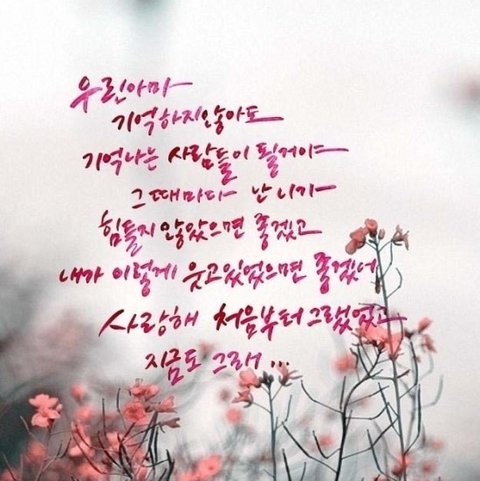 우린아마
기억하지않아도
기억나는 사람들이 될거야
그때마다 난 니가
힘들지 않았으면 좋겠고
내가 이렇게 웃고있었으면 좋겠어
사랑해 처음부터 그랬었고
지금도 그래 ...